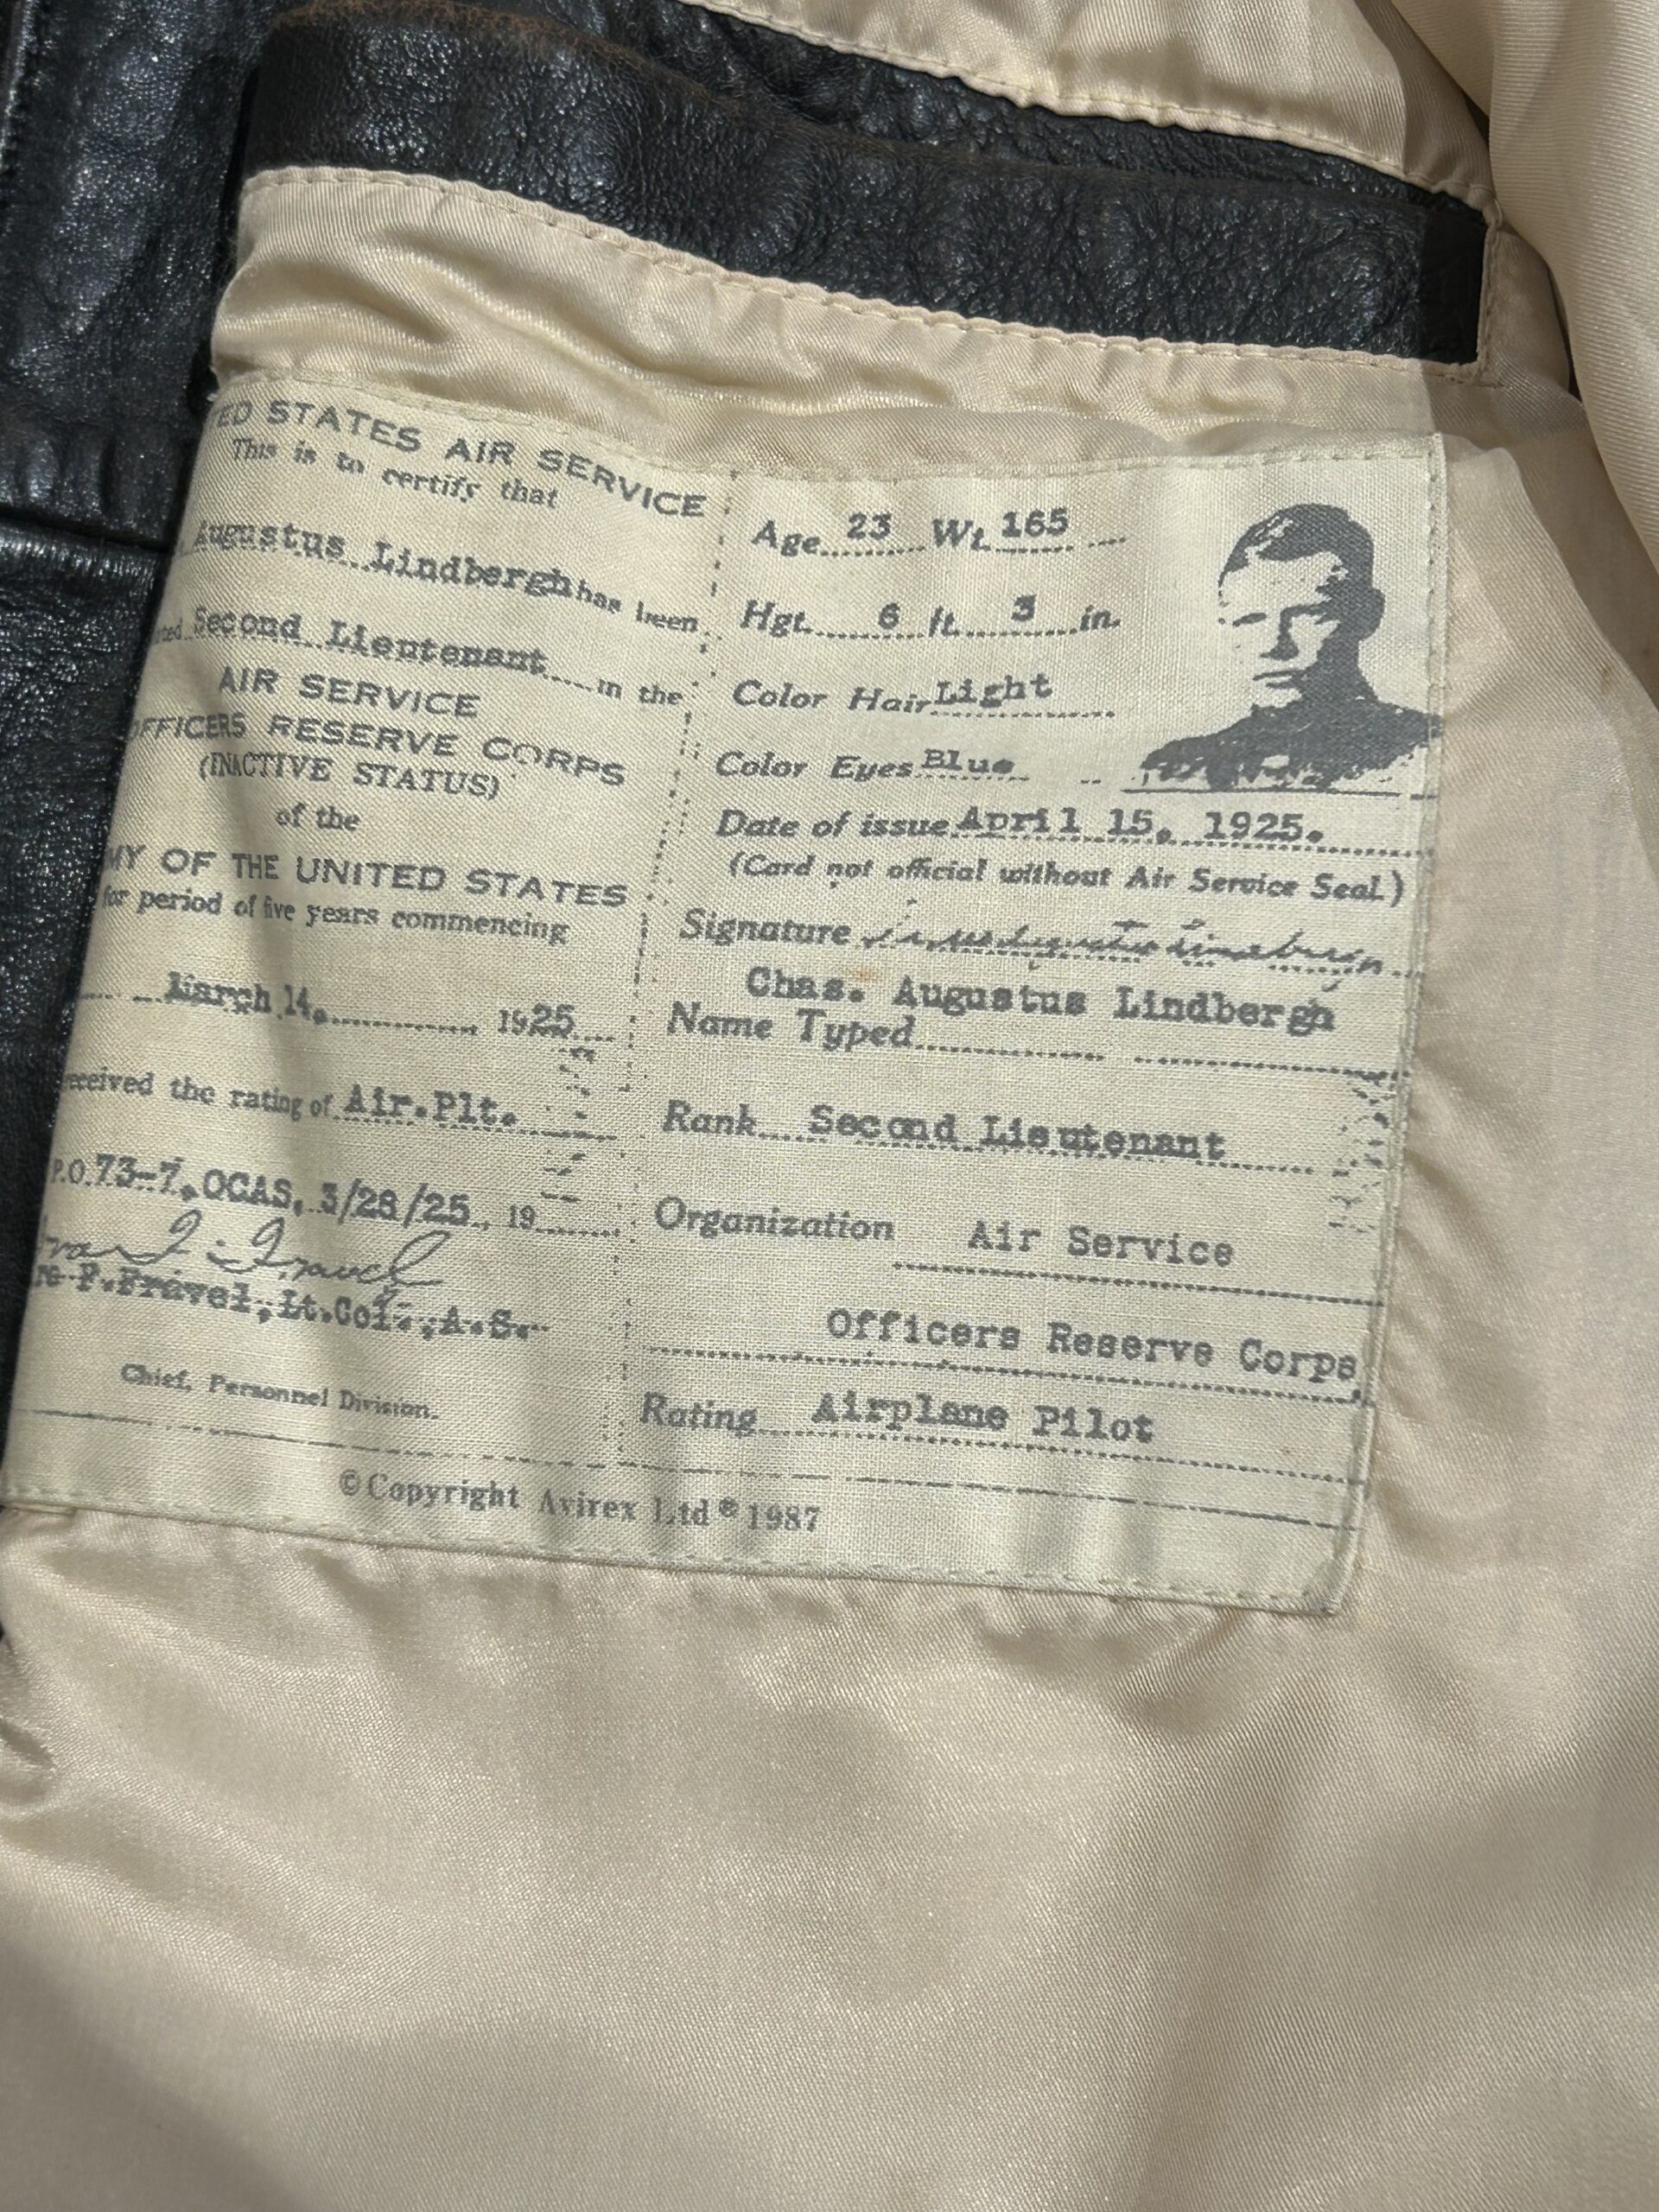 ED STATES AIR SERVICE
This is to certify that
Augustus Lindbergh has been
Second Lieutenant in the
AIR SERVICE
OFFICERS RESERVE CORPS
(INACTIVE STATUS)
of the
MY OF THE UNITED STATES
for period of five years commencing
March 14, 1925
received the rating of Air.Plt.
P.O.73-7, OCAS, 3/28/25, 19
F. Fravel, Lt. Col., A.S.
Chief, Personnel Division.
Age 23 Wt. 165
Hgt. 6 ft. 3 in.
Color Hair Light
Color Eyes Blue
Date of issue April 15, 1925.
(Card not official without Air Service Seal.)
Signature
Chas. Augustus Lindbergh
Name Typed
Rank Second Lieutenant
Organization Air Service
Officers Reserve Corps
Rating Airplane Pilot
© Copyright Avirex Ltd ® 1987